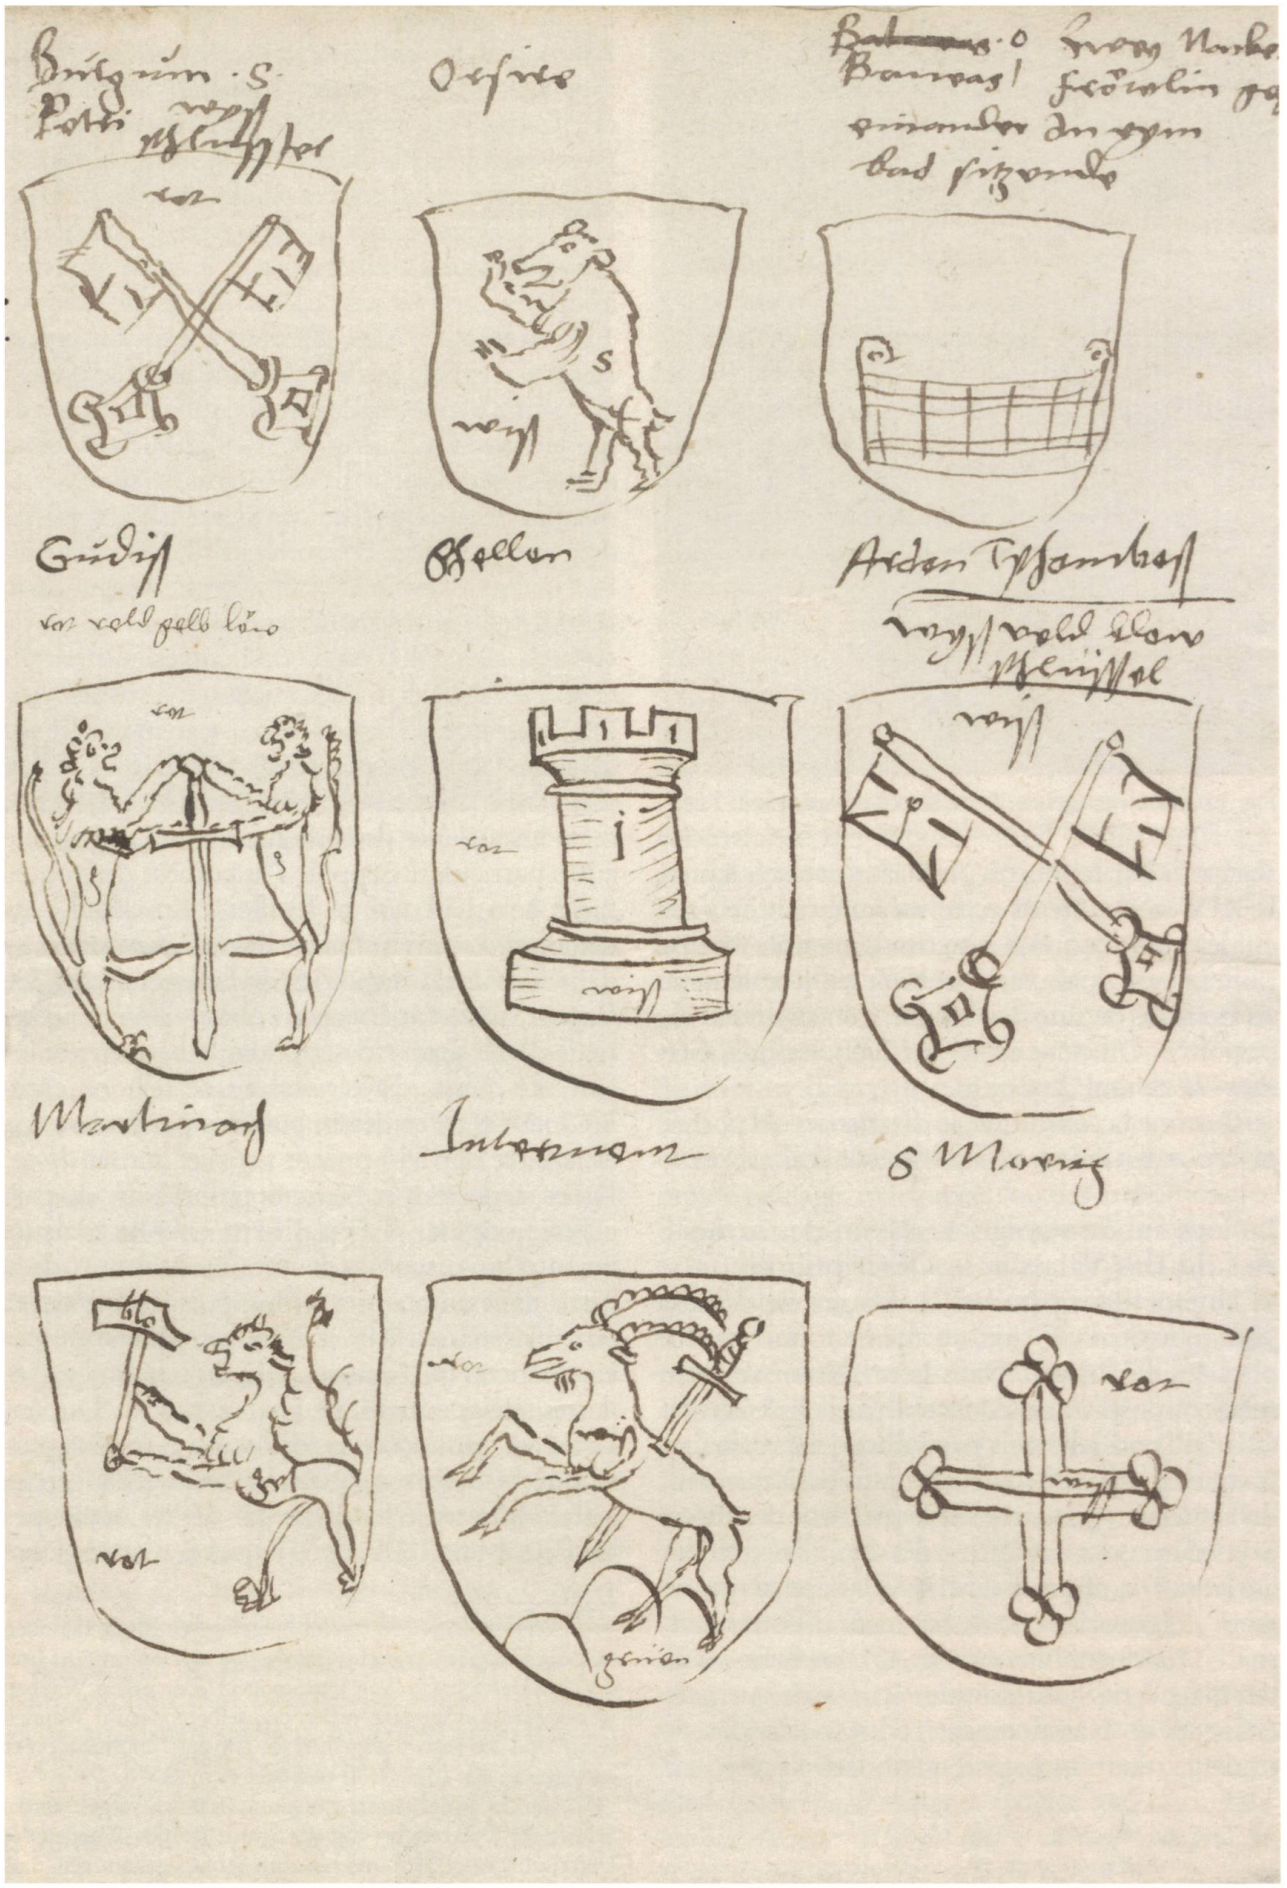 Burgum . S.
Petri wyß
schlussel
rot
Orsire
Banneas Zwey Nacke
fröwlin geg
einander In eym
bad sitzende
S
wiß
Gudiß
rot veld gelb löw
rot
g
g
Schellen
rot
j
wiß
Arden Tschambeß
wyß veld blow
schlüssel
wiß
Martinach
blo
gel
rot
Intermont
rot
wiß
grüen
S Moritz
rot
wiß